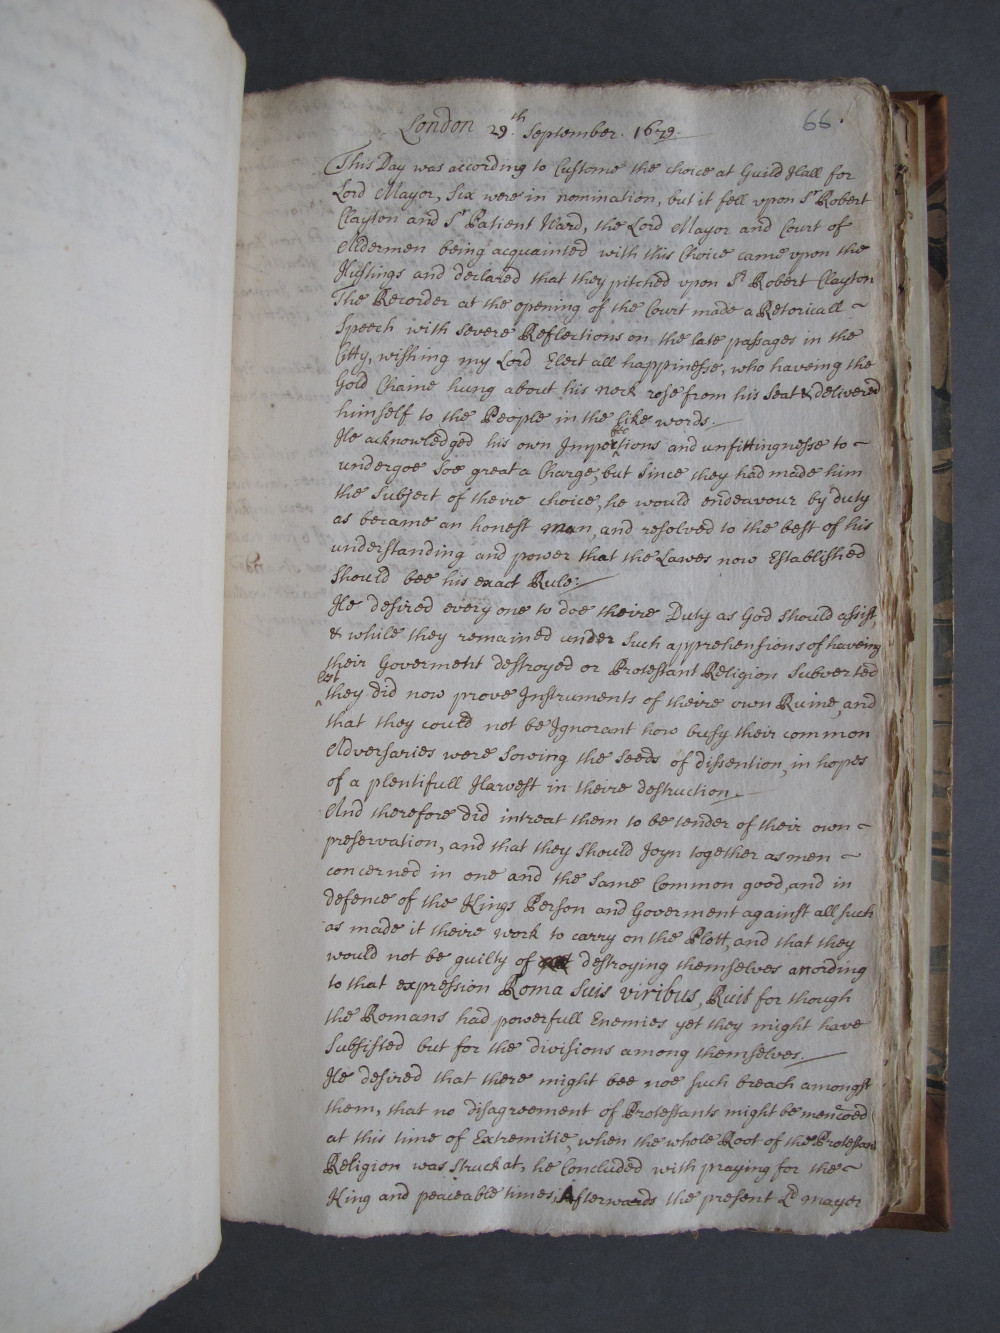 66
London 29th September. 1679.
This Day was according to Custome the choice at Guild Hall for
Lord Mayor, Six were in nomination, but it fell upon Sr Robert
Clayton and Sr Patient Ward, the Lord Mayor and Court of
Aldermen being acquainted with this Choice came upon the
Hustings and declared that they pitched upon Sr Robert Clayton
The Recorder at the opening of the Court made a Retoricall ~
Speech with severe Reflections on the late passages in the
Citty, wishing my Lord Elect all happinesse, who haveing the
Gold Chaine hung about his neck rose from his Seat & delivered
himself to the People in the like words.
He acknowledged his own Imperfections and unfittingnesse to ~
undergoe Soe great a Charge, but Since they had made him
the Subject of theire choice, he would endeavour by duty
as became an honest man, and resolved to the best of his
understanding and power that the Lawes now Established
Should bee his exact Rule:
He desired every one to doe theire Duty as God should assist,
& while they remained under Such apprehensions of haveing
their Goverment destroyed or Protestant Religion Subverted
lest they did now prove Instruments of theire own Ruine, and
that they could not be Ignorant how busy their common
Adversaries were Sowing the Seeds of dissention, in hopes
of a plentifull Harvest in theire destruction.
And therefore did intreat them to be tender of their own ~
preservation, and that they Should Joyn together as men ~
concerned in one and the Same Common good, and in
defence of the Kings Person and Goverment against all such
as made it theire work to carry on the Plott, and that they
would not be guilty of destroying themselves according
to that expression Roma Suis viribus, Ruit for though
the Romans had powerfull Enemies yet they might have
Subsisted but for the divisions among themselves.
He desired that there might bee noe such breach amongst
them, that no disagreement of Protestants might be mencoed
at this time of Extremitie, when the whole Root of the Protestant
Religion was Struck at, he Concluded with praying for the ~
King and peaceable times, Afterwards the present Ld mayor